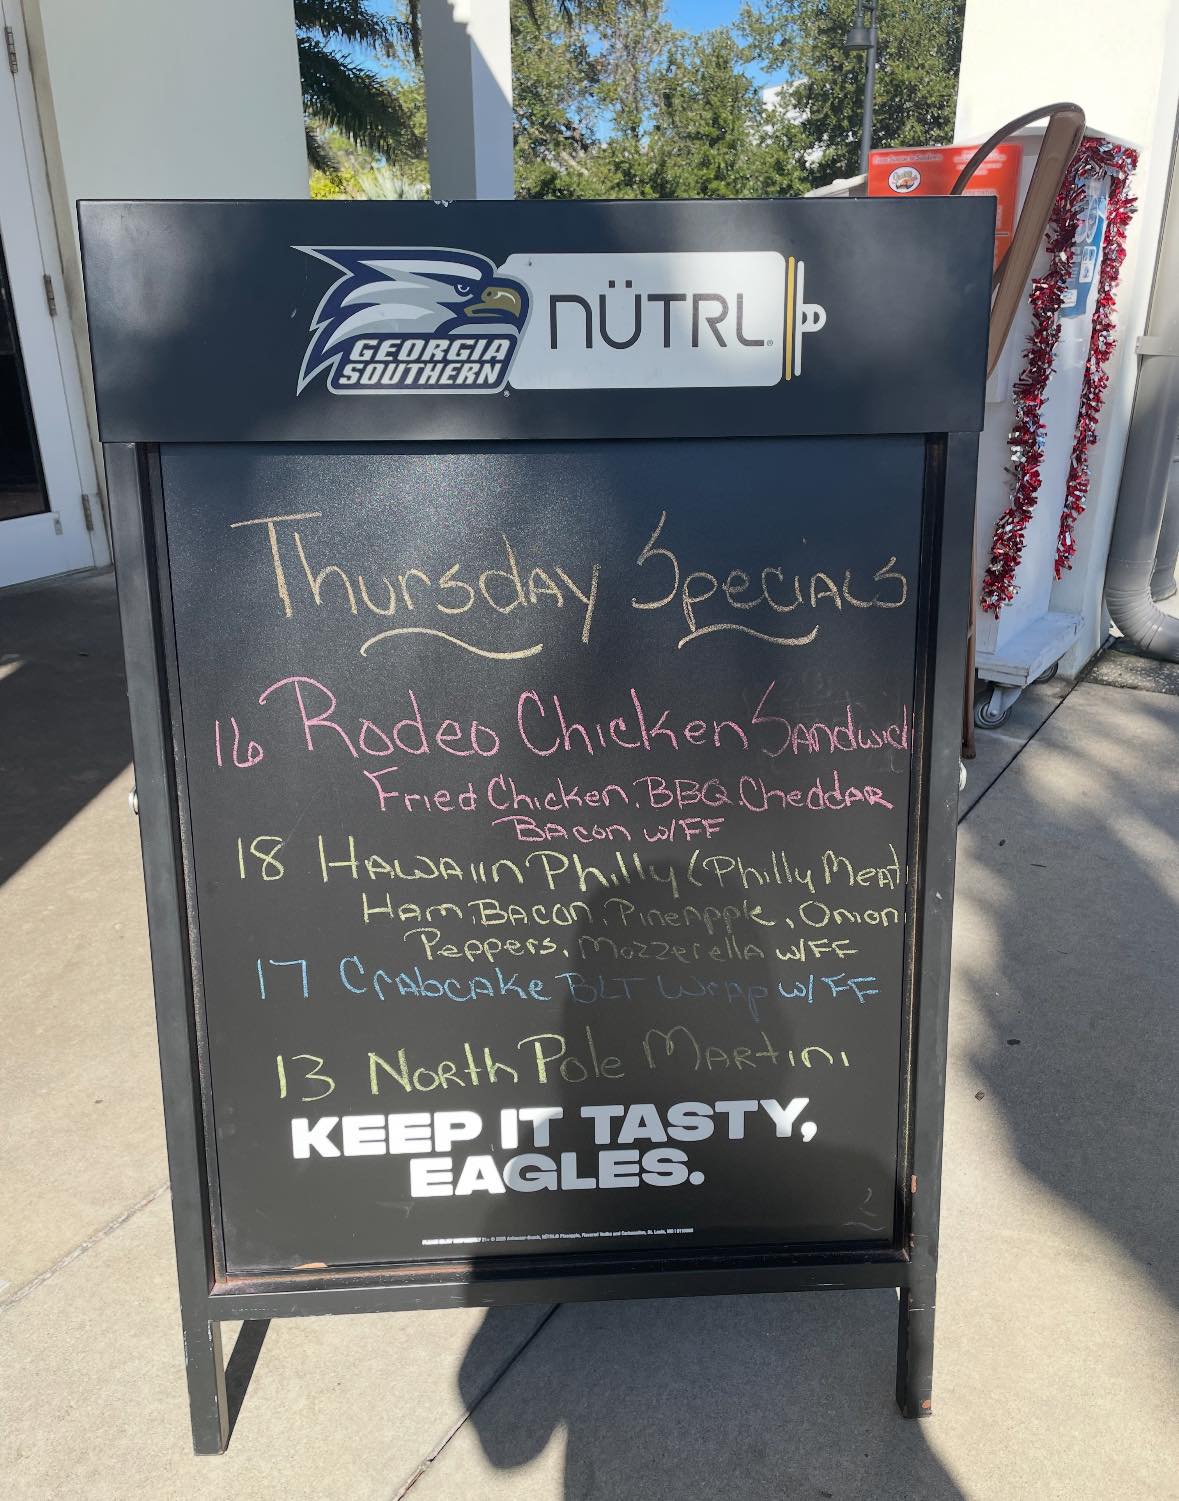 GEORGIA
SOUTHERN
NÜTRL
Thursday Specials
16 Rodeo Chicken Sandwich
Fried Chicken, BBQ, Cheddar
Bacon w/FF
18 Hawaiin Philly (Philly Meat,
Ham, Bacon, Pineapple, Onion
Peppers, Mozzerella w/FF
17 Crabcake BLT Wrap w/FF
13 North Pole Martini
KEEP IT TASTY,
EAGLES.